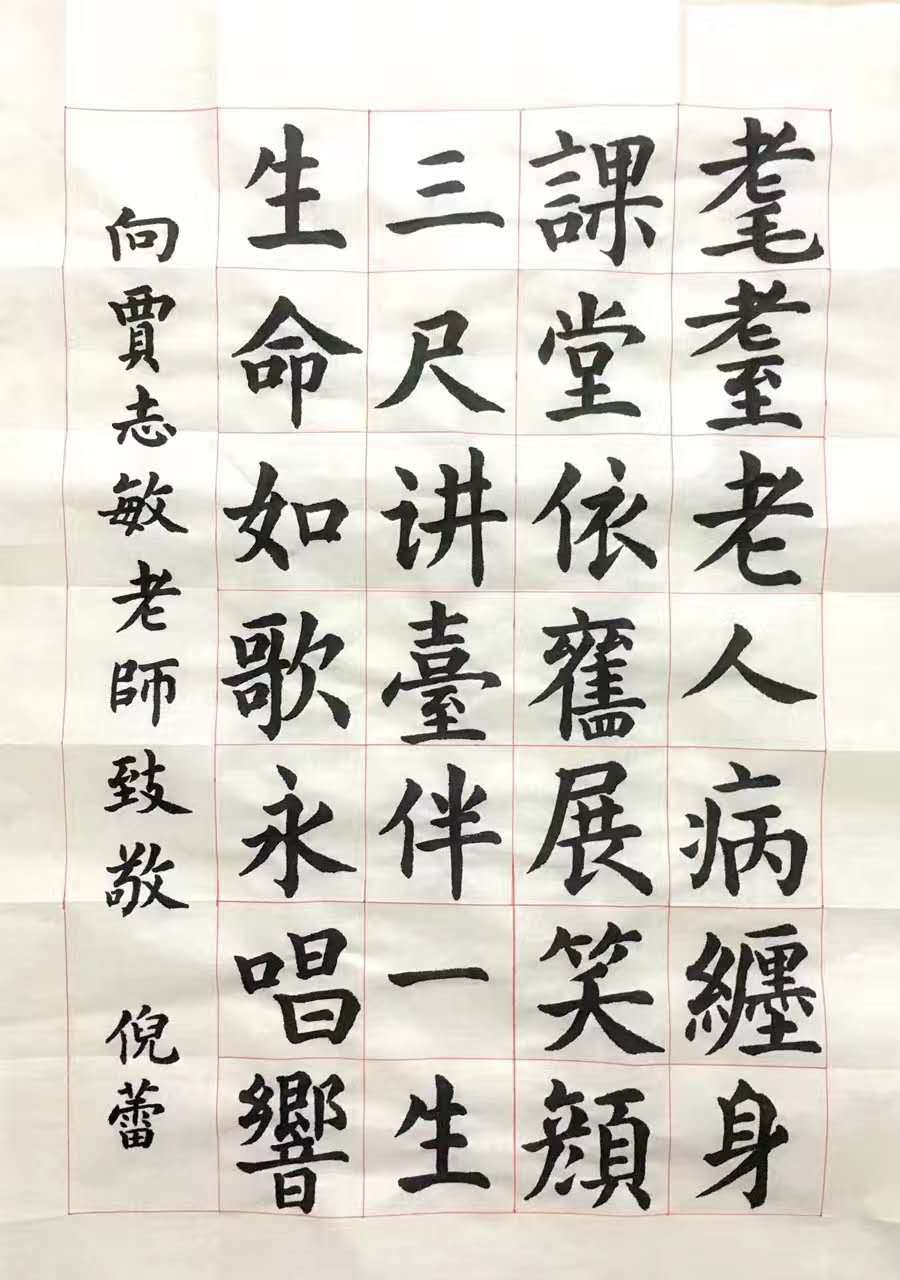 耄耋老人病纏身
課堂依舊展笑顔
三尺讲臺伴一生
生命如歌永唱響
向賈志敏老師致敬 倪蕾